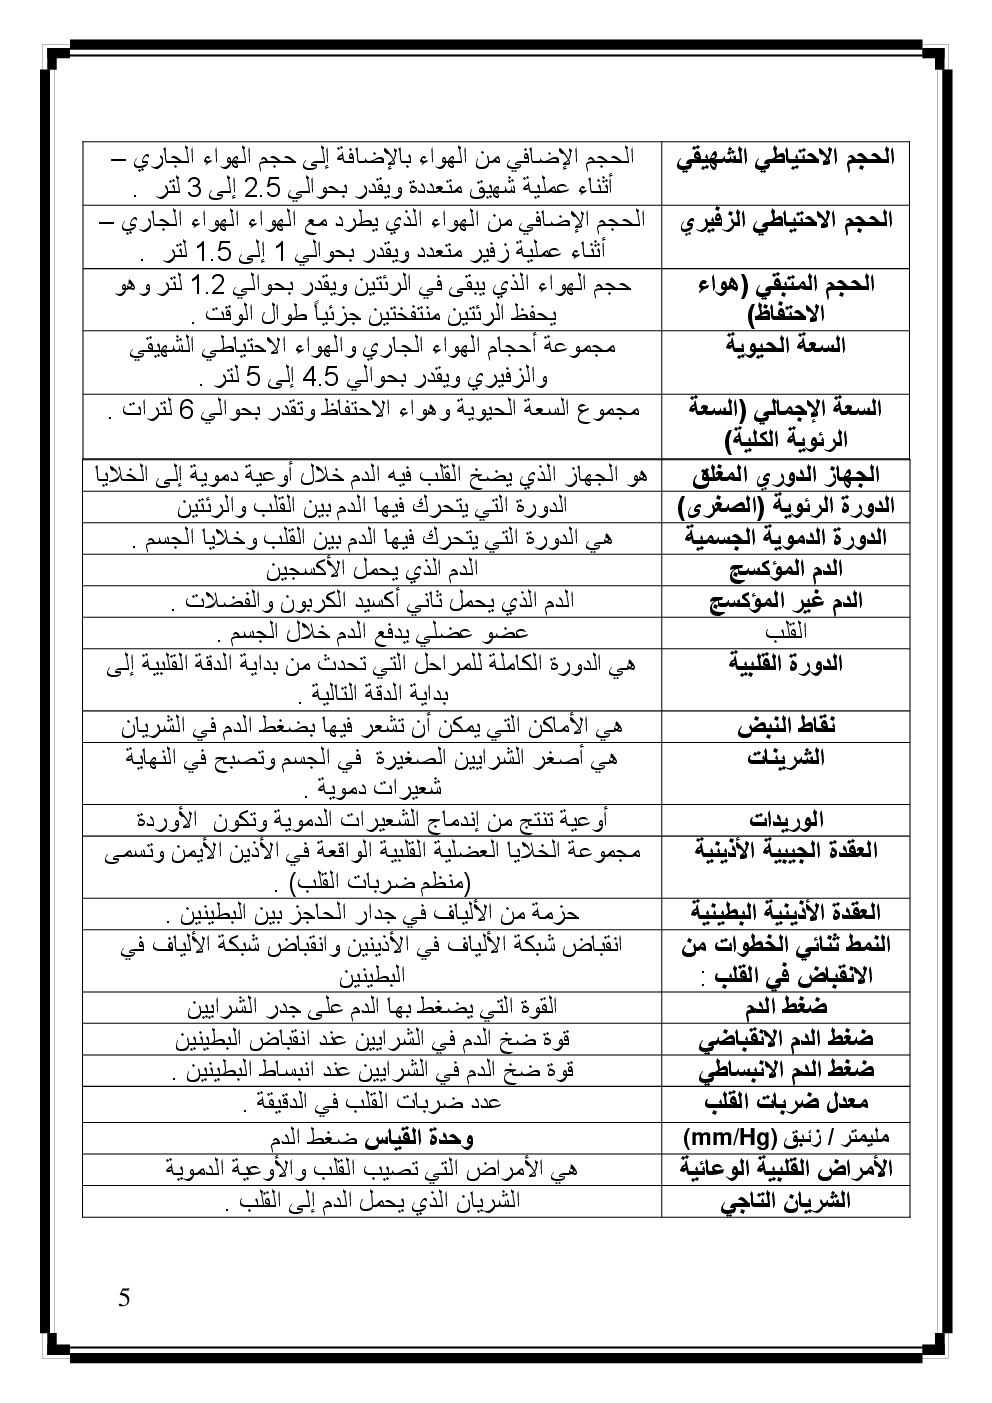 الحجم الاحتياطي الشهيقي
الحجم الإضافي من الهواء بالإضافة إلى حجم الهواء الجاري –
أثناء عملية شهيق متعددة ويقدر بحوالي 2.5 إلى 3 لتر .
الحجم الاحتياطي الزفيري
الحجم الإضافي من الهواء الذي يطرد مع الهواء الهواء الجاري –
أثناء عملية زفير متعدد ويقدر بحوالي 1 إلى 1.5 لتر .
الحجم المتبقي (هواء
الاحتفاظ)
حجم الهواء الذي يبقى في الرئتين ويقدر بحوالي 1.2 لتر وهو
يحفظ الرئتين منتفختين جزئياً طوال الوقت .
السعة الحيوية
مجموعة أحجام الهواء الجاري والهواء الاحتياطي الشهيقي
والزفيري ويقدر بحوالي 4.5 إلى 5 لتر .
السعة الإجمالي (السعة
الرئوية الكلية)
مجموع السعة الحيوية وهواء الاحتفاظ وتقدر بحوالي 6 لترات .
الجهاز الدوري المغلق
هو الجهاز الذي يضخ القلب فيه الدم خلال أوعية دموية إلى الخلايا
الدورة الرئوية (الصغرى)
الدورة التي يتحرك فيها الدم بين القلب والرئتين
الدورة الدموية الجسمية
هي الدورة التي يتحرك فيها الدم بين القلب وخلايا الجسم .
الدم المؤكسج
الدم الذي يحمل الأكسجين
الدم غير المؤكسج
الدم الذي يحمل ثاني أكسيد الكربون والفضلات .
القلب
عضو عضلي يدفع الدم خلال الجسم .
الدورة القلبية
هي الدورة الكاملة للمراحل التي تحدث من بداية الدقة القلبية إلى
بداية الدقة التالية .
نقاط النبض
هي الأماكن التي يمكن أن تشعر فيها بضغط الدم في الشريان
الشرينات
هي أصغر الشرايين الصغيرة في الجسم وتصبح في النهاية
شعيرات دموية .
الوريدات
أوعية تنتج من إندماج الشعيرات الدموية وتكون الأوردة
العقدة الجيبية الأذينية
مجموعة الخلايا العضلية القلبية الواقعة في الأذين الأيمن وتسمى
(منظم ضربات القلب) .
العقدة الأذينية البطينية
حزمة من الألياف في جدار الحاجز بين البطينين .
النمط ثنائي الخطوات من
الانقباض في القلب :
انقباض شبكة الألياف في الأذينين وانقباض شبكة الألياف في
البطينين
ضغط الدم
القوة التي يضغط بها الدم على جدر الشرايين
ضغط الدم الانقباضي
قوة ضخ الدم في الشرايين عند انقباض البطينين
ضغط الدم الانبساطي
قوة ضخ الدم في الشرايين عند انبساط البطينين .
معدل ضربات القلب
عدد ضربات القلب في الدقيقة .
مليمتر / زئبق (mm/Hg)
وحدة القياس ضغط الدم
الأمراض القلبية الوعائية
هي الأمراض التي تصيب القلب والأوعية الدموية
الشريان التاجي
الشريان الذي يحمل الدم إلى القلب .
5